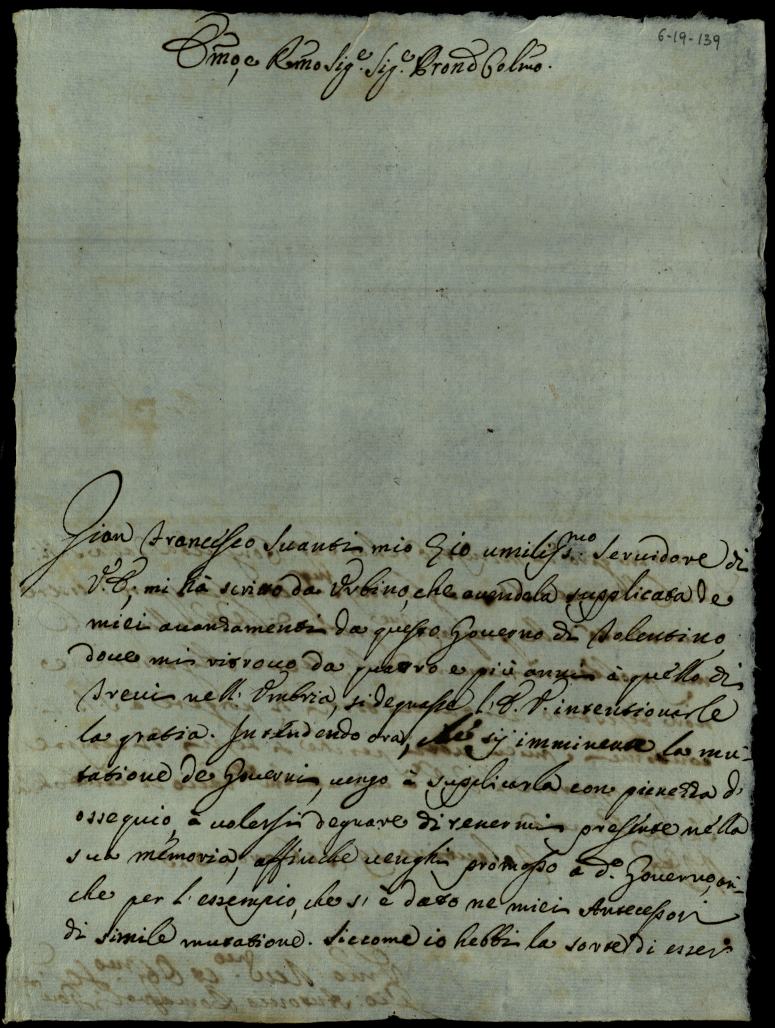 6-19-139
Em̃o, e Rm̃o Sig.e Sig.e Pron̄e Colmo.
Gian Francesco Suanti mio Zio umiliss.mo Servidore di
V.E., mi hà scritto da Urbino, che avendola supplicata de
miei avanzamenti da questo Governo di Tolentino,
dove mi ritrovo da quattro e più anni à quello di
Trevi nell'Umbria, si degnasse l'E.V. intentionarle
la gratia. Intendendo ora, che sij imminente la mu-
tatione de Governi, vengo à supplicarla con pienezza d'
ossequio, à volersi degnare di tenermi presente nella
sua memoria, affinche venghi promosso à d.o Governo,
che per l'essempio, che s'è dato ne miei Antecessori
di simile mutatione. Siccome io hebbi la sorte di esser